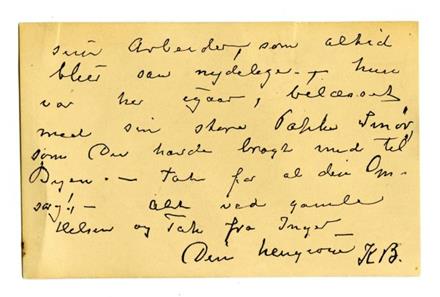 sine Arbeider, som altid
blev saa nydelige. — hun
var her igaar, belæsset
med sin store Pakke Smør,
som Den havde bragt med til
Byen. — Tak for al din Om-
sorg! — Alt ved gamle
Hilsen og Tak fra Inger
Din hengivne K B.